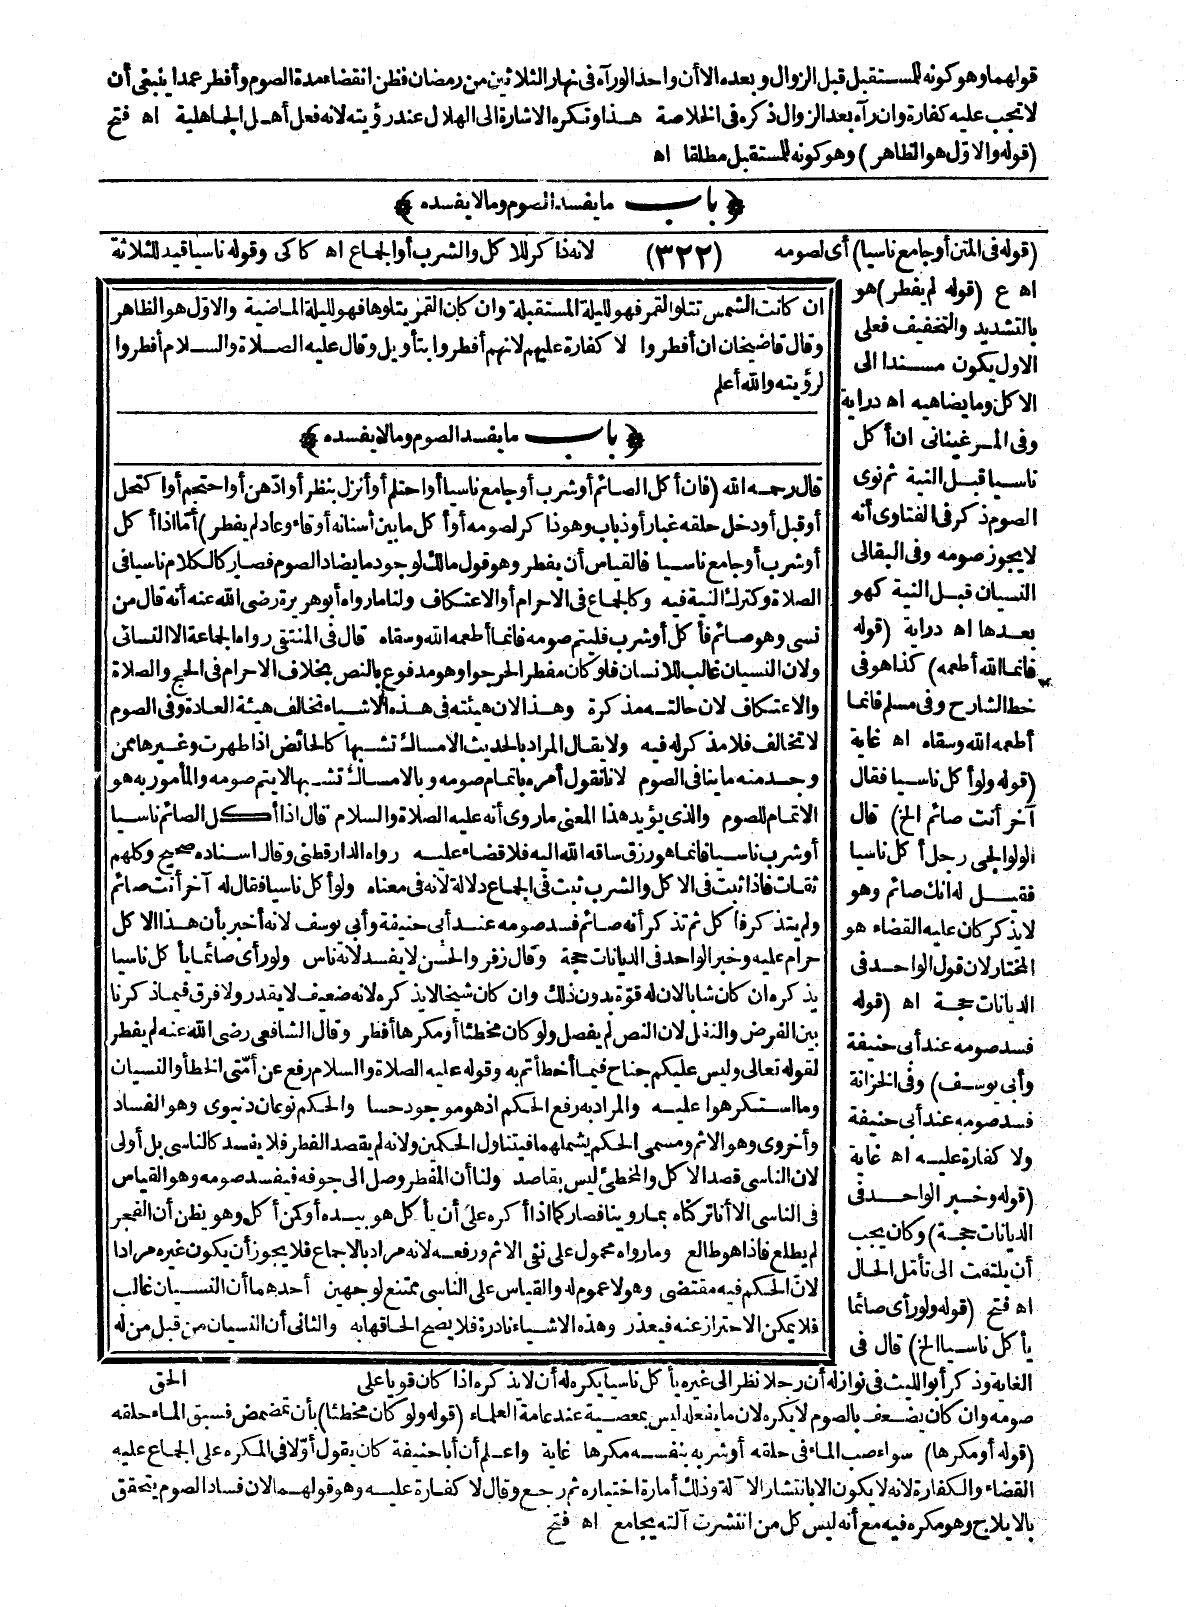 قولهما وهو كونه للمستقبل قبل الزوال وبعده الا أن واحدا لو رآه فى نهار الثلاثين من رمضان فظن انقضاء مدة الصوم وأفطر عمدا ينبغى أن
لا تجب عليه كفارة وان رآه بعد الزوال ذكره فى الخلاصة هذا وتكره الاشارة الى الهلال عند رؤيته لانه فعل أهل الجاهلية اه فتح
(قوله والاول هو الظاهر) وهو كونه للمستقبل مطلقا اه
﴿باب ما يفسد الصوم وما لا يفسده﴾
(قوله فى المتن أو جامع ناسيا) أى لصومه (٣٢٢) لانه ذاكر للاكل والشرب أو الجماع اه كاكى وقوله ناسيا قيد للثلاثة
اه ع (قوله لم يفطر) هو
بالتشديد والتخفيف فعلى
الاول يكون مسندا الى
الاكل وما يضاهيه اه دراية
وفى المرغينانى ان أكل
ناسيا قبل النية ثم نوى
الصوم ذكر فى الفتاوى أنه
لا يجوز صومه وفى البقالى
النسيان قبل النية كهو
بعدها اه دراية (قوله
فانما الله أطعمه) كذا هو فى
خط الشارح وفى مسلم فانما
أطعمه الله وسقاه اه غاية
(قوله ولو أكل ناسيا فقال
آخر أنت صائم الخ) قال
الولوالجى رجل أكل ناسيا
فقيل له انك صائم وهو
لا يذكر كان عليه القضاء هو
المختار لان قول الواحد فى
الديانات حجة اه (قوله
فسد صومه عند أبى حنيفة
وأبى يوسف) وفى الخزانة
فسد صومه عند أبى حنيفة
ولا كفارة عليه اه غاية
(قوله وخبر الواحد فى
الديانات حجة) وكان يجب
أن يلتفت الى تأمل الحال
اه فتح (قوله ولو رأى صائما
يأكل ناسيا الخ) قال فى
ان كانت الشمس تتلو القمر فهو لليلة المستقبلة وان كان القمر يتلوها فهو لليلة الماضية والاول هو الظاهر
وقال قاضيخان ان أفطروا لا كفارة عليهم لانهم أفطروا بتأويل وقال عليه الصلاة والسلام أفطروا
لرؤيته والله أعلم
﴿باب ما يفسد الصوم وما لا يفسده﴾
قال رحمه الله (فان أكل الصائم أو شرب أو جامع ناسيا أو احتلم أو أنزل بنظر أو ادّهن أو احتجم أو اكتحل
أو قبل أو دخل حلقه غبار أو ذباب وهو ذاكر لصومه أو أكل ما بين أسنانه أو قاء وعاد لم يفطر) أمّا اذا أكل
أو شرب أو جامع ناسيا فالقياس أن يفطر وهو قول مالك لوجود ما يضاد الصوم فصار كالكلام ناسيا فى
الصلاة وكترك النية فيه وكالجماع فى الاحرام أو الاعتكاف ولنا ما رواه أبو هريرة رضى الله عنه أنه قال من
نسى وهو صائم فأكل أو شرب فليتم صومه فانما أطعمه الله وسقاه قال فى المنتقى رواه الجماعة الا النسائى
ولان النسيان غالب للانسان فلو كان مفطرا لحرجوا وهو مدفوع بالنص بخلاف الاحرام فى الحج والصلاة
والاعتكاف لان حالته مذكرة وهذا لان هيئته فى هذه الاشياء تخالف هيئة العادة وفى الصوم
لا تخالف فلا مذكر له فيه ولا يقال المراد بالحديث الامساك تشبها كالحائض اذا طهرت وغيرها ممن
وجد منه ما ينافى الصوم لانا نقول أمره باتمام صومه وبالامساك تشبها لا يتم صومه والمأمور به هو
الاتمام للصوم والذى يؤيد هذا المعنى ما روى أنه عليه الصلاة والسلام قال اذا أكل الصائم ناسيا
أو شرب ناسيا فانما هو رزق ساقه الله اليه فلا قضاء عليه رواه الدارقطنى وقال اسناده صحيح وكلهم
ثقات فاذا ثبت فى الاكل والشرب ثبت فى الجماع دلالة لانه فى معناه ولو أكل ناسيا فقال له آخر أنت صائم
ولم يتذكر فأكل ثم تذكر أنه صائم فسد صومه عند أبى حنيفة وأبى يوسف لانه أخبر بأن هذا الاكل
حرام عليه وخبر الواحد فى الديانات حجة وقال زفر والحسن لا يفسد لانه ناس ولو رأى صائما يأكل ناسيا
يذكره ان كان شابا لان له قوّة بدون ذلك وان كان شيخا لا يذكره لانه ضعيف لا يقدر ولا فرق فيما ذكرنا
بين الفرض والنفل لان النص لم يفصل ولو كان مخطئا أو مكرها أفطر وقال الشافعى رضى الله عنه لم يفطر
لقوله تعالى وليس عليكم جناح فيما أخطأتم به وقوله عليه الصلاة والسلام رفع عن أمّتى الخطأ والنسيان
وما استكرهوا عليه والمراد به رفع الحكم اذ هو موجود حسا والحكم نوعان دنيوى وهو الفساد
وأخروى وهو الاثم ومسمى الحكم يشملهما فيتناول الحكمين ولانه لم يقصد الفطر فلا يفسد كالناسى بل أولى
لان الناسى قصد الاكل والمخطئ ليس بقاصد ولنا أن المفطر وصل الى جوفه فيفسد صومه وهو القياس
فى الناسى الا أنا تركناه بما روينا فصار كما اذا أكره على أن يأكل هو بيده أو كمن أكل وهو يظن أن الفجر
لم يطلع فاذا هو طالع وما رواه محمول على نفى الاثم ورفعه لانه مراد بالاجماع فلا يجوز أن يكون غيره مرادا
لانّ الحكم فيه مقتضى وهو لا عموم له والقياس على الناسى ممتنع لوجهين أحدهما أن النسيان غالب
فلا يمكن الاحتراز عنه فيعذر وهذه الاشياء نادرة فلا يصح الحاقها به والثانى أن النسيان من قبل من له
الحق
الغاية وذكر أبو الليث فى نوازله أن رجلا نظر الى غيره يأكل ناسيا يكره له أن لا يذكره اذا كان قويا على
صومه وان كان يضعف بالصوم لا يكره لان ما يفعله ليس بمعصية عند عامة العلماء (قوله ولو كان مخطئا) بأن تمضمض فسبق الماء حلقه
(قوله أو مكرها) سواء صب الماء فى حلقه أو شربه بنفسه مكرها غاية واعلم أن أبا حنيفة كان يقول أوّلا فى المكره على الجماع عليه
القضاء والكفارة لانه لا يكون الا بانتشار الآلة وذلك أمارة اختياره ثم رجع وقال لا كفارة عليه وهو قولهما لان فساد الصوم يتحقق
بالايلاج وهو مكره فيه مع أنه ليس كل من انتشرت آلته يجامع اه فتح